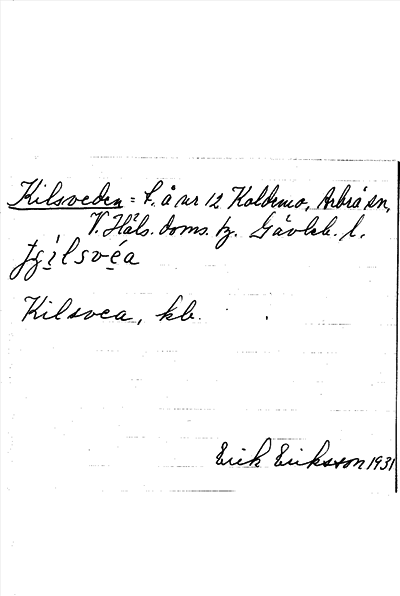 Kilsveden = t. å nr 12 Koldemo, Arbrå sn,
V. Häls. doms. tg. Gävleb. l.
Kilsvea, kb.
Erik Eriksson 1931